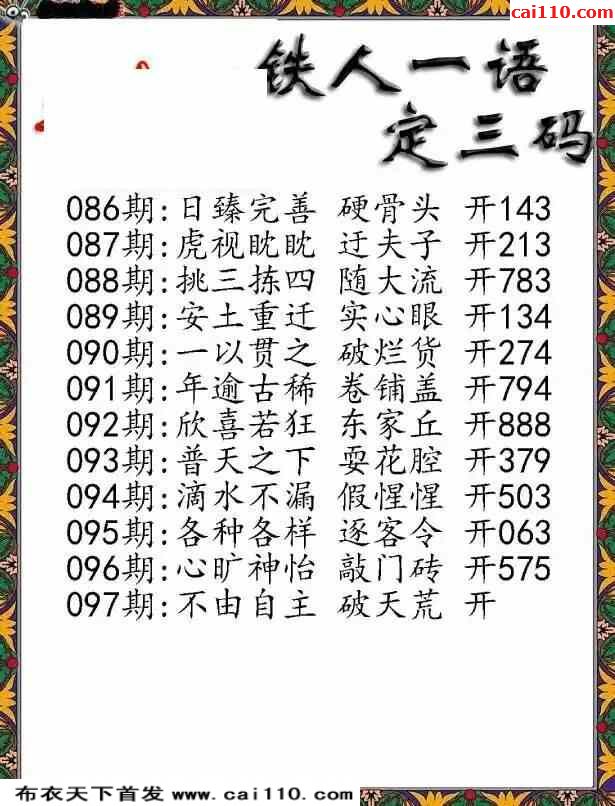 cai110.com
铁人一语
定三码
086期:日臻完善 硬骨头 开143
087期:虎视眈眈 迂夫子 开213
088期:挑三拣四 随大流 开783
089期:安土重迁 实心眼 开134
090期:一以贯之 破烂货 开274
091期:年逾古稀 卷铺盖 开794
092期:欣喜若狂 东家丘 开888
093期:普天之下 耍花腔 开379
094期:滴水不漏 假惺惺 开503
095期:各种各样 逐客令 开063
096期:心旷神怡 敲门砖 开575
097期:不由自主 破天荒 开
布衣天下首发 www.cai110.com